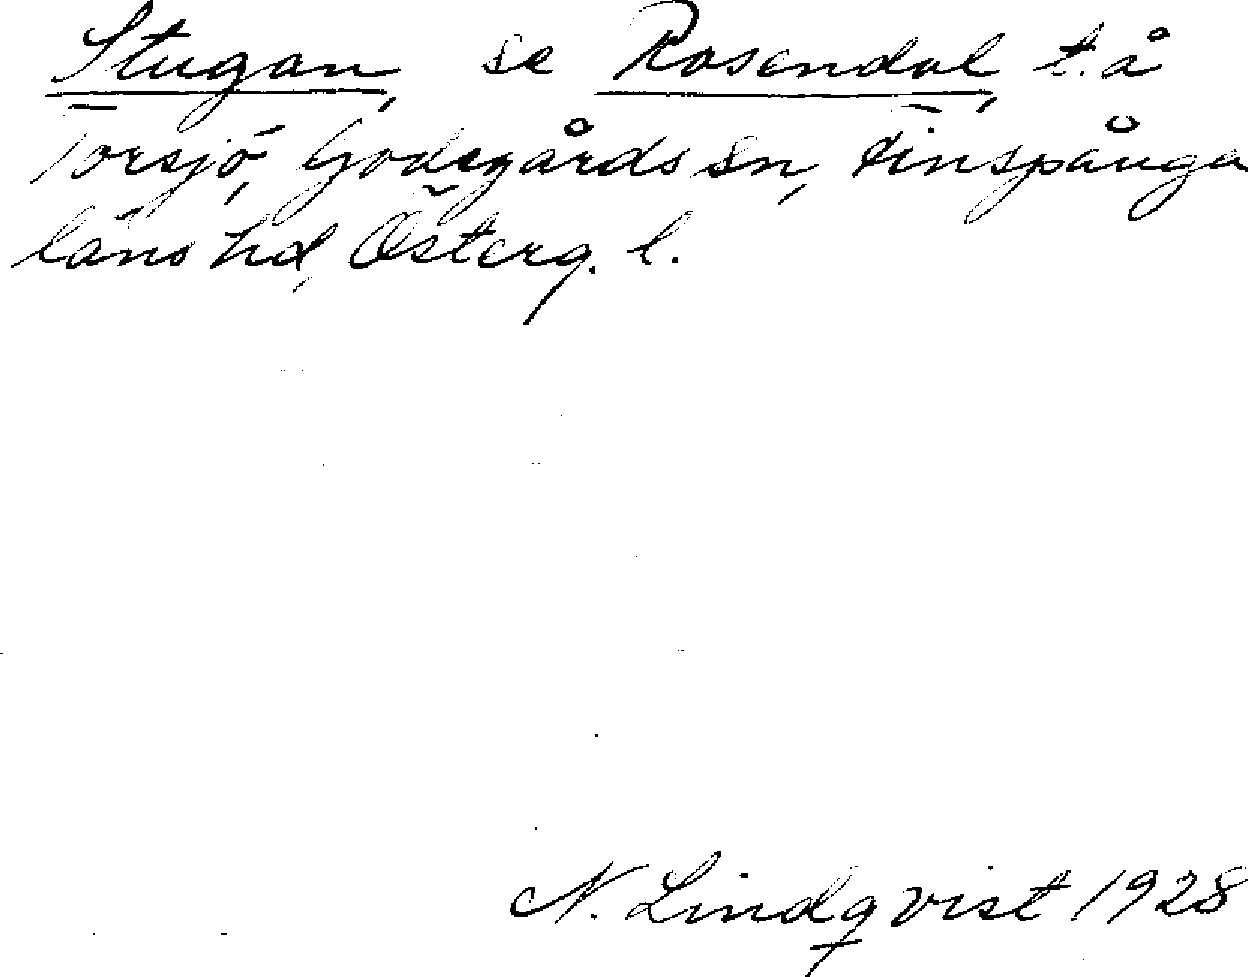 Stugan, se Rosendal, t. å
Torsjö, Godegårds sn, Finspånga
läns hd, Österg. l.
N. Lindqvist 1928